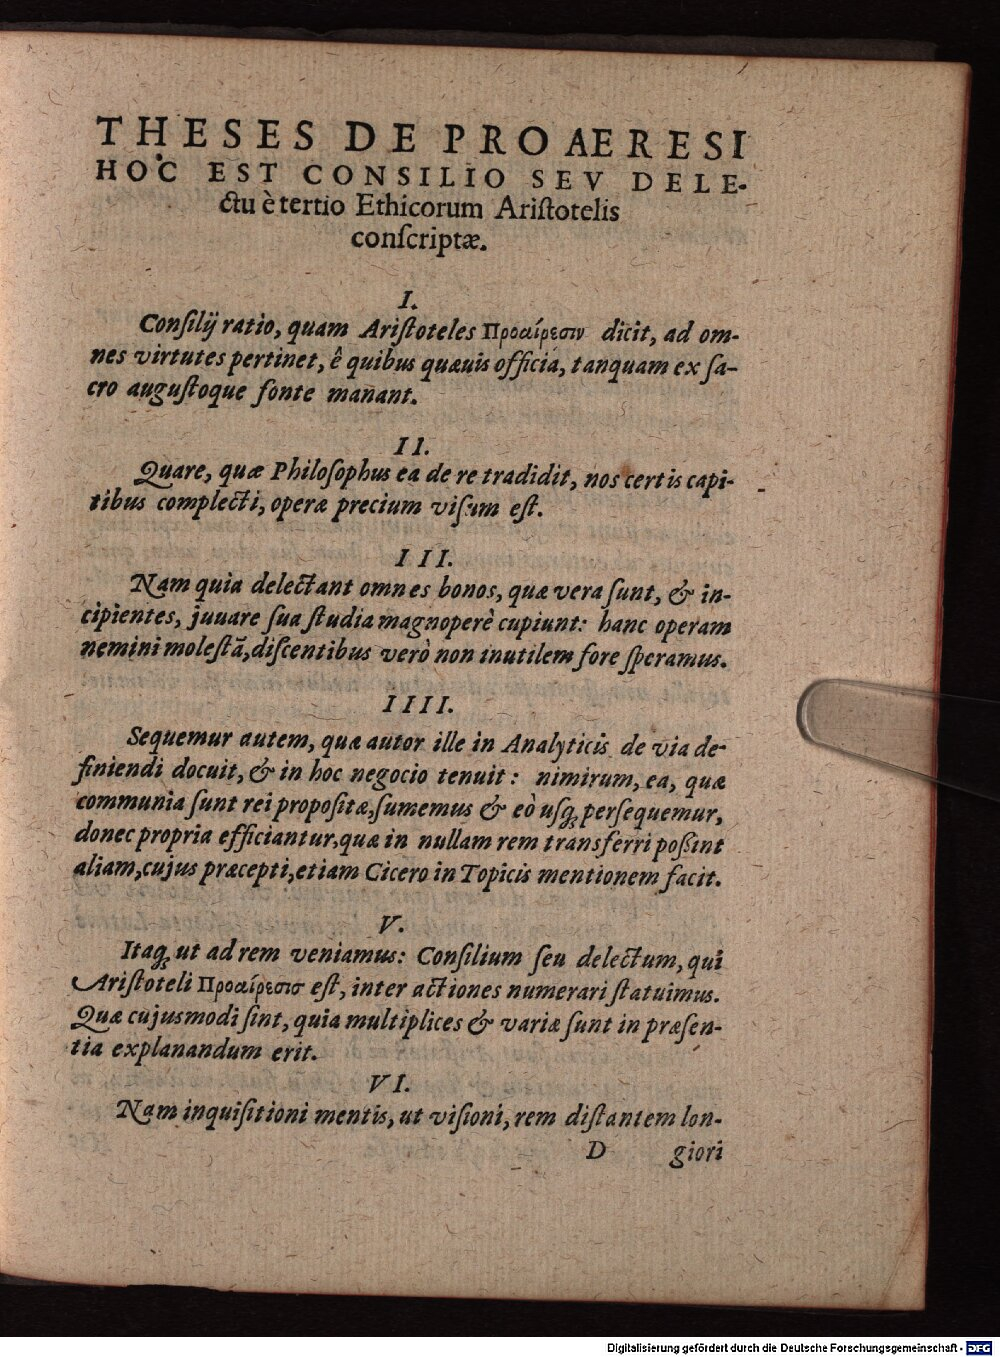 THESES DE PROAERESI
HOC EST CONSILIO SEV DELE-
ctu è tertio Ethicorum Ariſtotelis
conſcriptæ.
I.
Conſilij ratio, quam Ariſtoteles Προαίρεσιν dicit, ad om-
nes virtutes pertinet, ê quibus quævis officia, tanquam ex ſa-
cro auguſtoque fonte manant.
II.
Quare, quæ Philoſophus ea de re tradidit, nos certis capi-
tibus complecti, operæ precium viſum eſt.
III.
Nam quia delectant omnes bonos, quæ vera ſunt, & in-
cipientes, juuare ſua ſtudia magnoperè cupiunt: hanc operam
nemini moleſtã, diſcentibus verò non inutilem fore ſperamus.
IIII.
Sequemur autem, quæ autor ille in Analyticis de via de-
finiendi docuit, & in hoc negocio tenuit: nimirum, ea, quæ
communia ſunt rei propoſitæ, ſumemus & eò uſq́; perſequemur,
donec propria efficiantur, quæ in nullam rem transferri poſſint
aliam, cujus præcepti, etiam Cicero in Topicis mentionem facit.
V.
Itaq́; ut ad rem veniamus: Conſilium ſeu delectum, qui
Ariſtoteli Προαίρεσισ eſt, inter actiones numerari ſtatuimus.
Quæ cujusmodi ſint, quia multiplices & variæ ſunt in præſen-
tia explanandum erit.
VI.
Nam inquiſitioni mentis, ut viſioni, rem diſtantem lon-
D giori
Digitalisierung gefördert durch die Deutsche Forschungsgemeinschaft - DFG